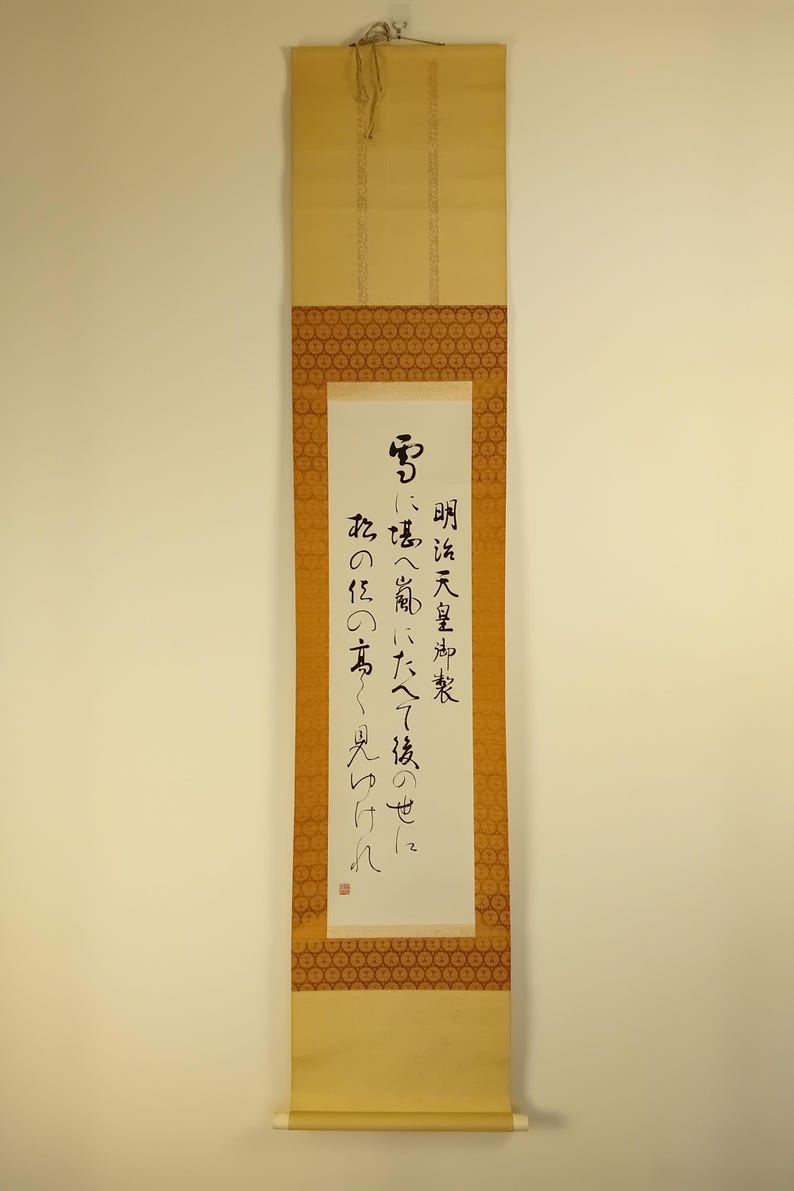 明治天皇御製
雪に堪へ嵐にたへて後の世に
松の位の高く見ゆけれ